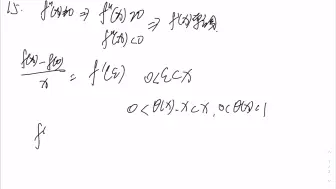 15. f''(x)≠0 ⇒ f''(x)>0
f''(x)<0 ⇒ f'(x)
f(x)-f(0)/x = f'(ξ) 0<ξ<x
0<θ(x)·x<x, 0<θ(x)<1
f'